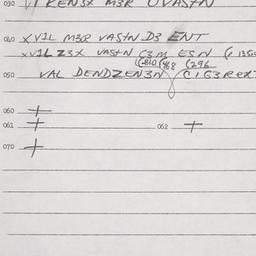 030 RENSX M3R OVASTN
040 XV1L M3R VASTN D3 ENT
XV1L Z3X VASTN C3M ESN
(810 (468 (296
050 VAL DENDZEN3N
060 +
061 + 062 +
070 +